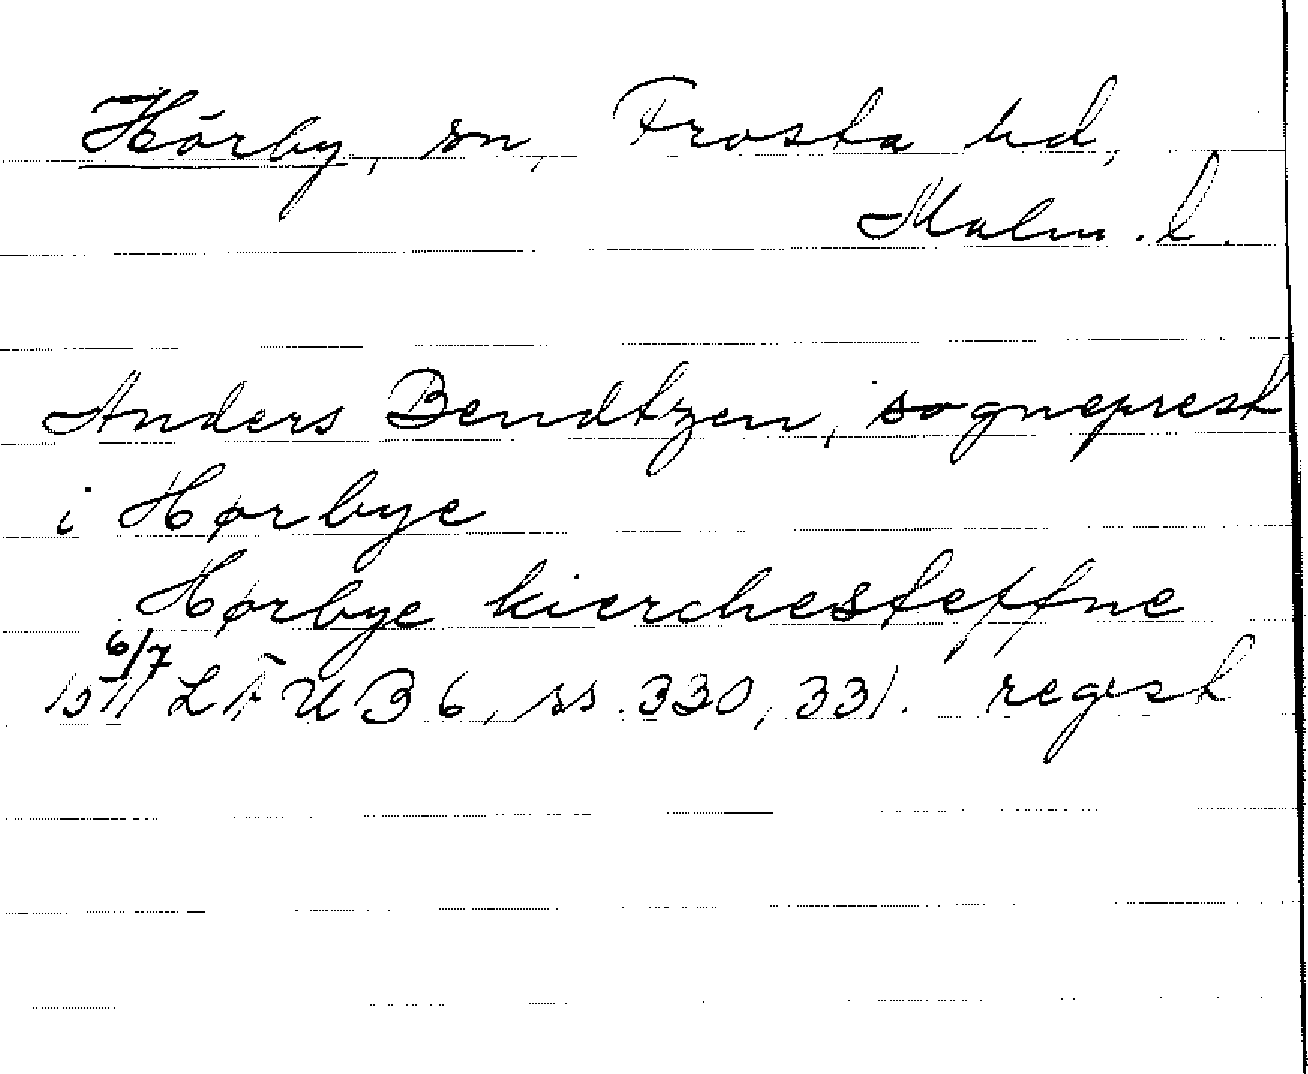 Hörby, sn, Frosta hd,
Malm. l.
Anders Bendtzen, sogneprest
i Hørbye
Hørbye kierchesteffne
6/7
1511 LÄUB 6, ss. 330, 331. regest